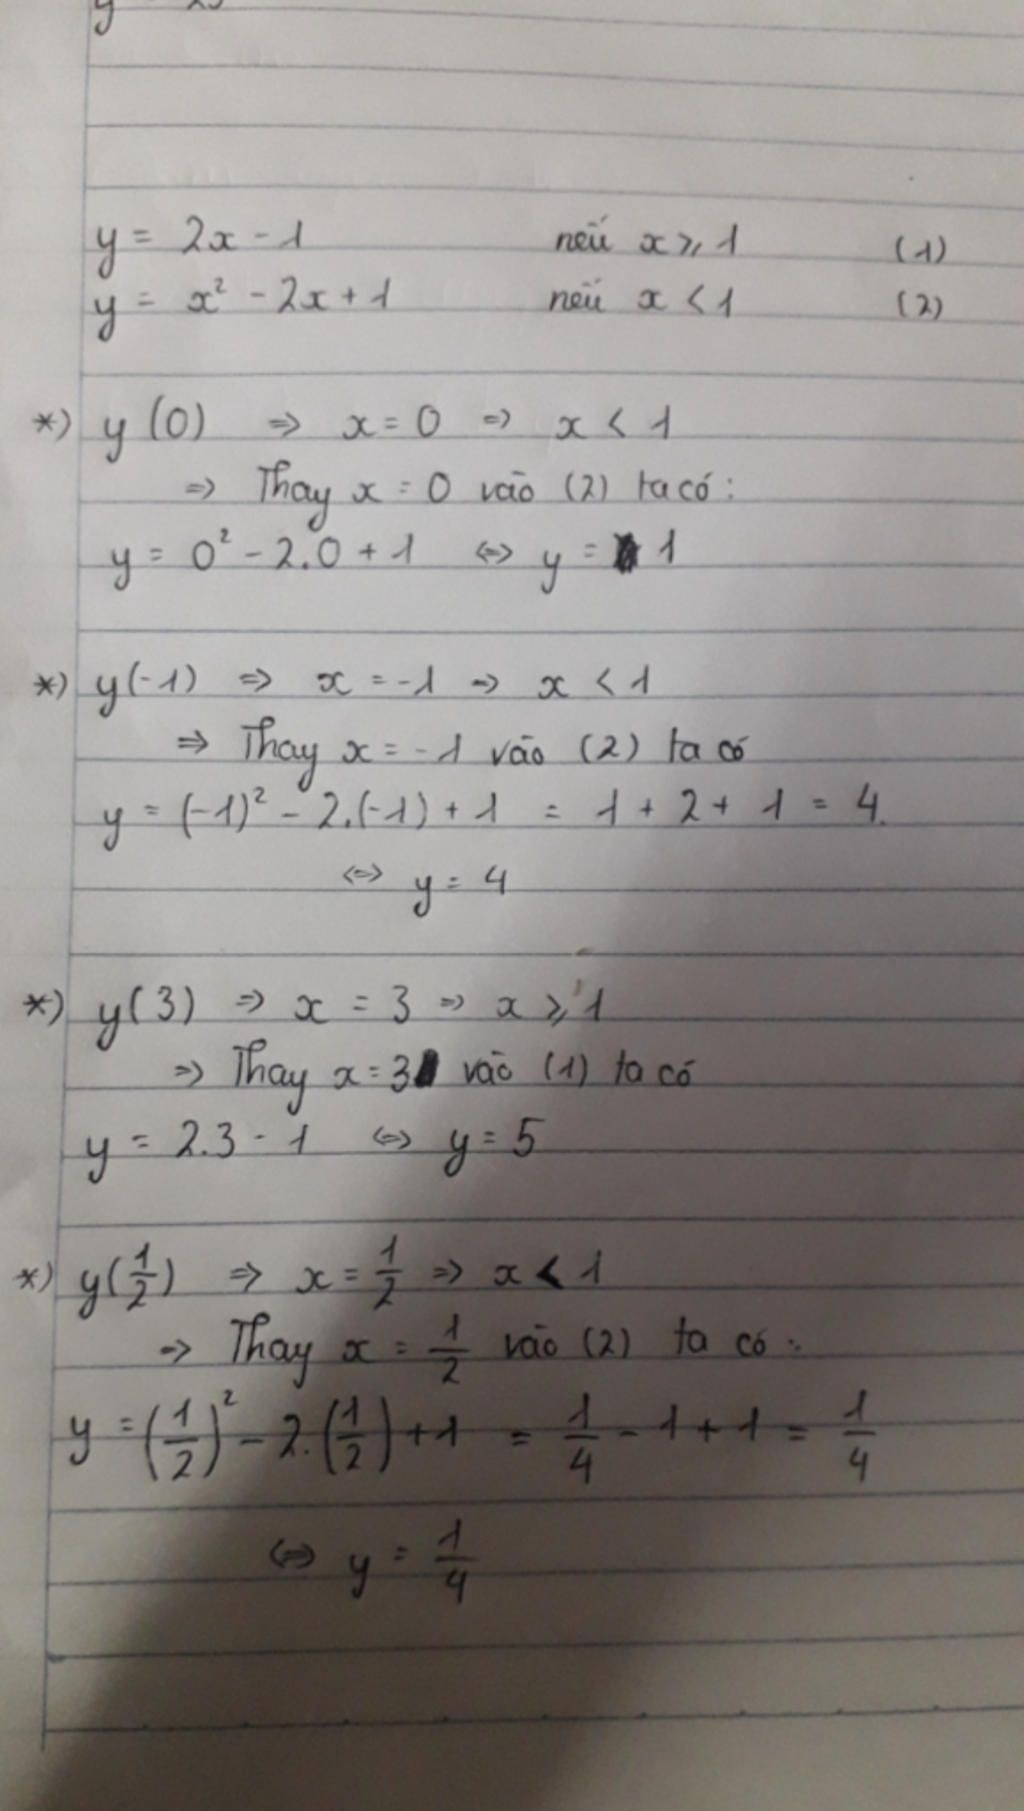 y = 2x - 1 nếu x ⩾ 1 (1)
y = x² - 2x + 1 nếu x < 1 (2)
*) y(0) => x = 0 => x < 1
=> Thay x = 0 vào (2) ta có :
y = 0² - 2.0 + 1 <=> y = 1
*) y(-1) => x = -1 => x < 1
=> Thay x = -1 vào (2) ta có
y = (-1)² - 2.(-1) + 1 = 1 + 2 + 1 = 4.
<=> y = 4
*) y(3) => x = 3 => x ⩾ 1
=> Thay x = 3 vào (1) ta có
y = 2.3 - 1 <=> y = 5
*) y(1/2) => x = 1/2 => x < 1
=> Thay x = 1/2 vào (2) ta có :
y = (1/2)² - 2.(1/2) + 1 = 1/4 - 1 + 1 = 1/4
<=> y = 1/4